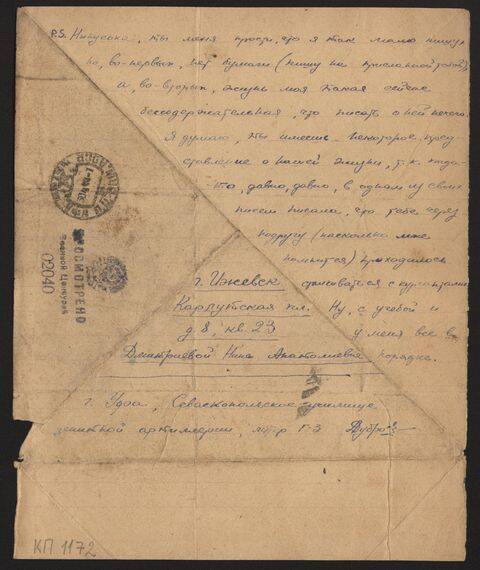 P.S. Нинуська, ты меня прости, что я так мало пишу,
но, во-первых, нет бумаги (пишу на присланной тобой),
а, во-вторых, жизнь моя такая сейчас
бессодержательная, что писать о ней нечего.
Я думаю, ты имеешь некоторое пред-
ставление о нашей жизни, т.к. когда-
-то, давно, давно, в одном из своих
писем писала, что тебе через
подругу (насколько мне
помнится) приходилось
с курсантами
Ну, с учебой и
у меня все в
порядке.
г. Ижевск
Карлутская пл.
д. 8, кв. 23
Дмитриевой Нине Анатолиевне
г. Уфа, Севастопольское училище
зенитной артиллерии,
ПРОСМОТРЕНО
Военной Цензурой
02040
КП 1172